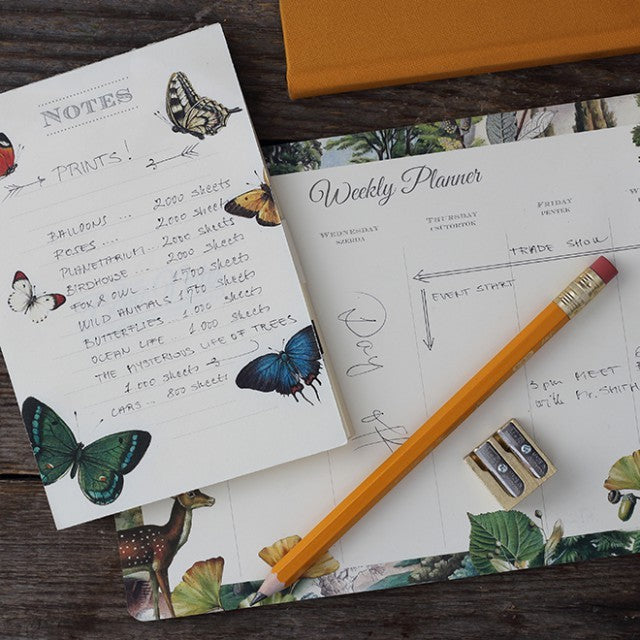 NOTES
PRINTS!
BALLOONS ... 2000 sheets
ROSES .... 2000 sheets
PLANETARIUM... 2000 sheets
BIRDHOUSE ... 2000 sheets
FOX & OWL ... 1700 sheets
WILD ANIMALS sheets
BUTTERFLIES... 1.000 sheets
OCEAN LIFE ... 1.000 sheets
THE MYSTERIOUS LIFE OF TREES
1.000 sheets
CARS ... 800 sheets
Weekly Planner
WEDNESDAY
SZERDA
THURSDAY
CSÜTÖRTÖK
FRIDAY
PÉNTEK
TRADE SHOW
EVENT START
Day
off
3 pm MEET
with Mr. SMITH